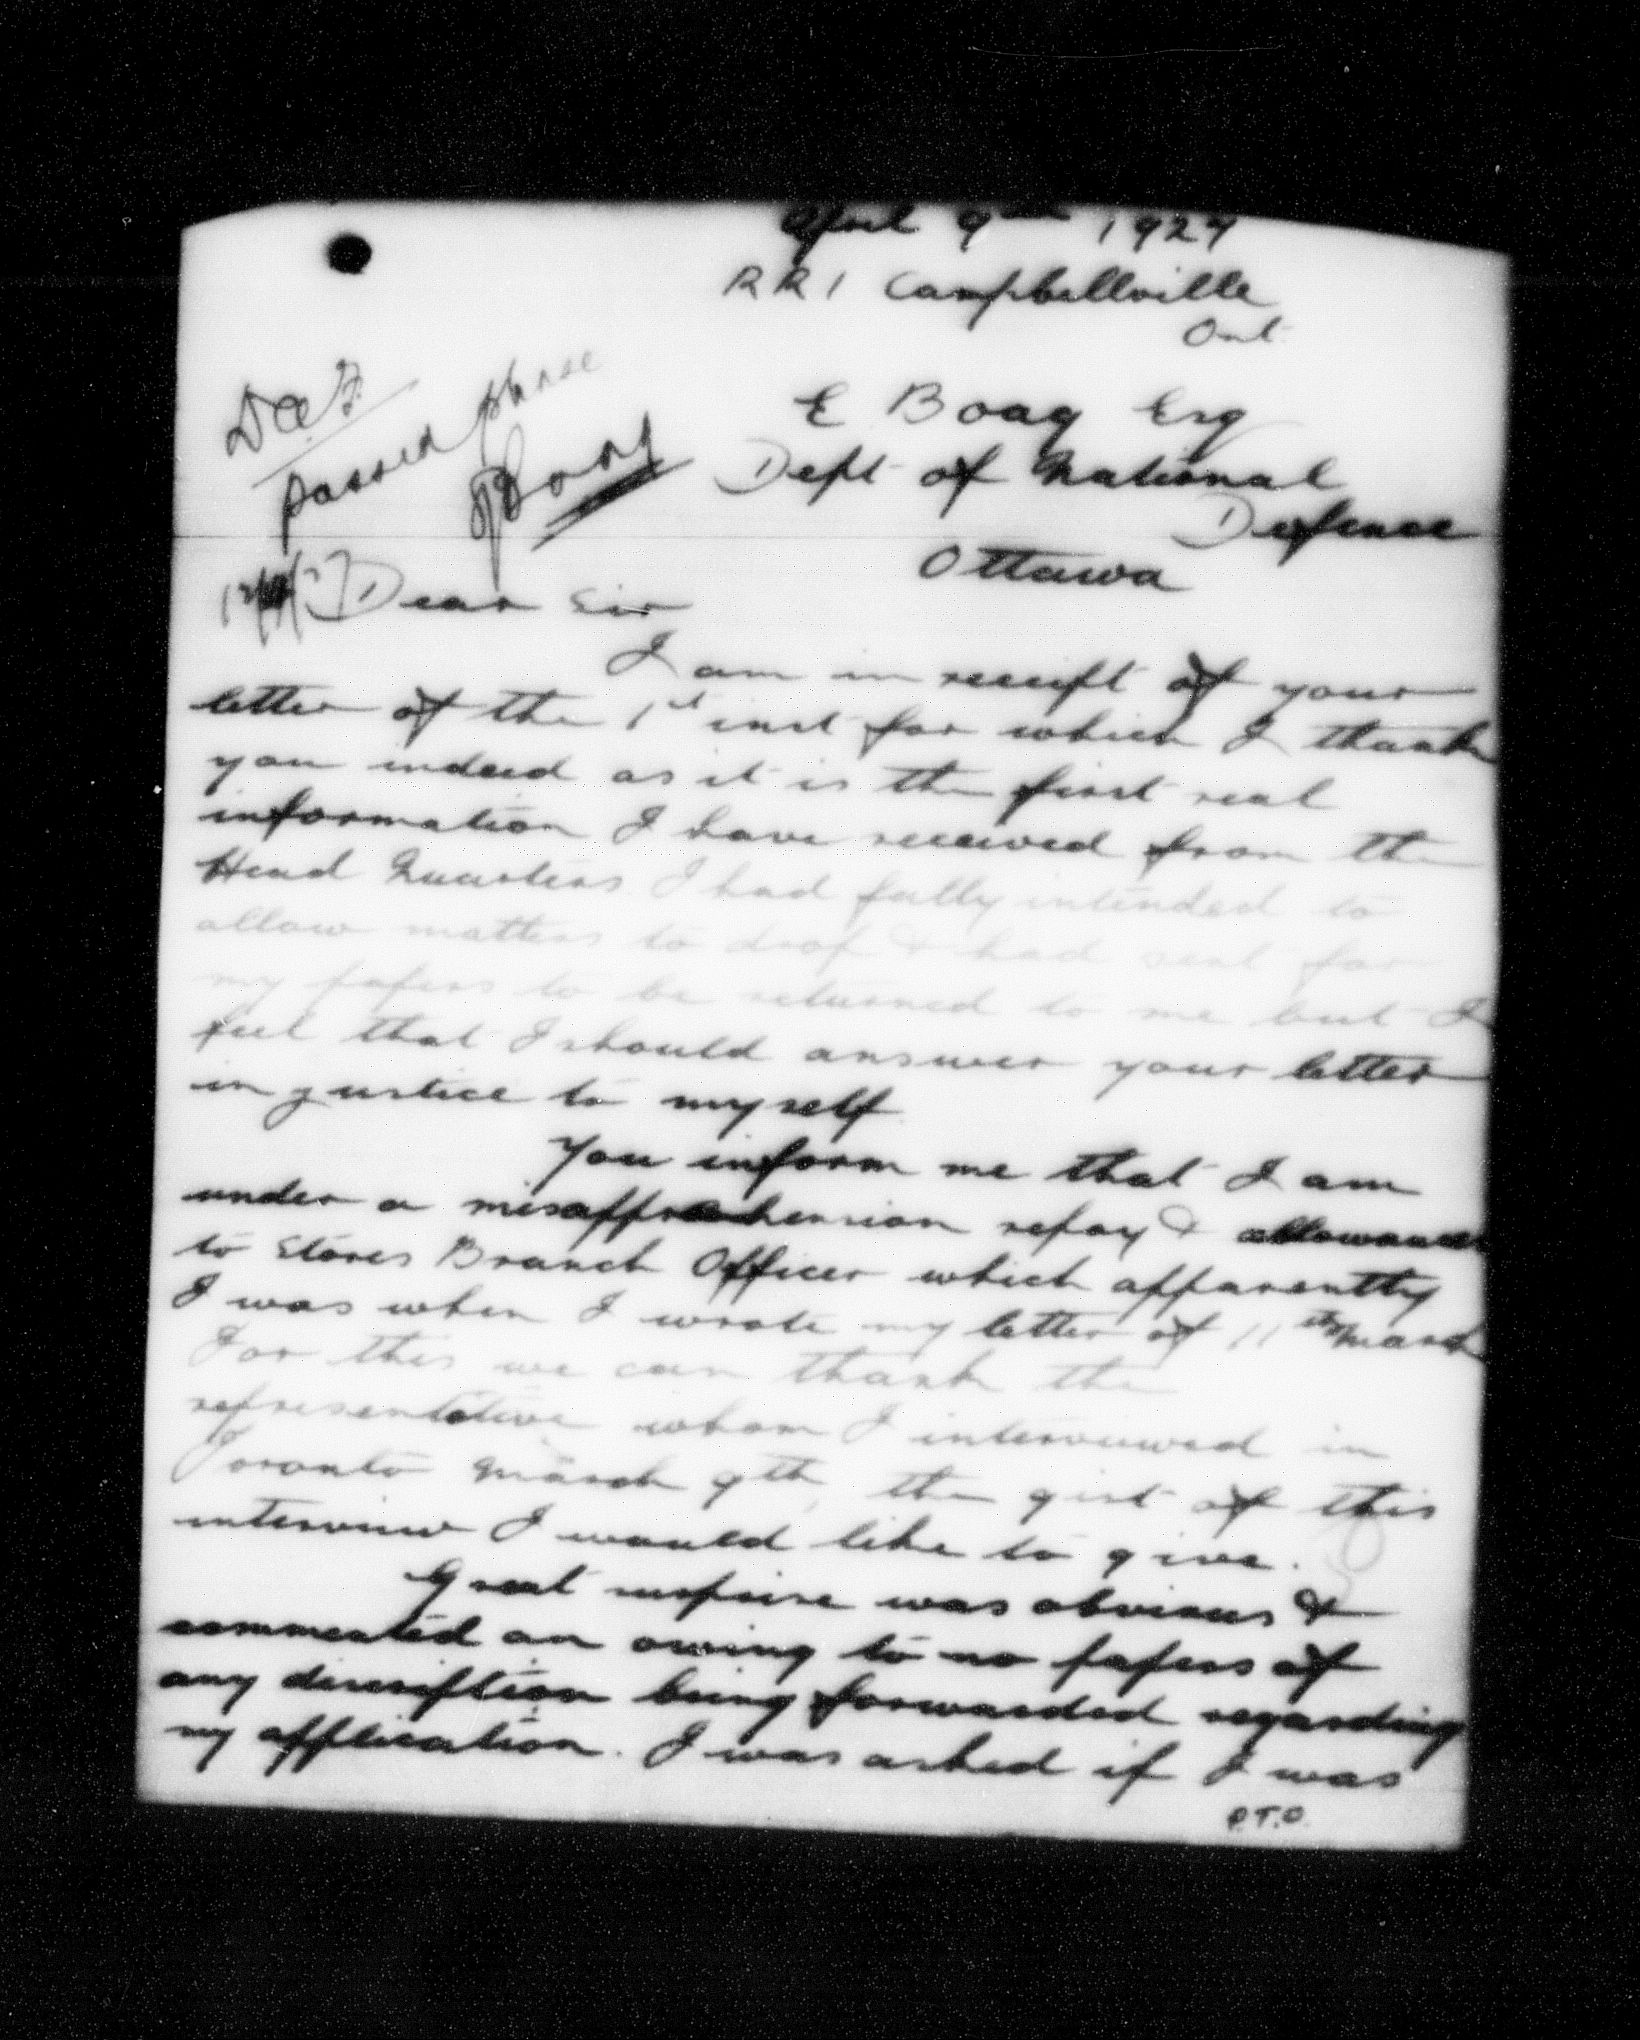 April 9th 1927
R R 1 Campbellville
Ont
D A F.
passed please
Boag
E Boag Esq
Dept of National
Defence
Ottawa
Dear Sir
I am in receipt of your
letter of the 1st inst for which I thank
you indeed as it is the first real
information I have received from the
Head Quarters I had fully intended to
allow matters to drop & had sent for
my papers to be returned to me but I
feel that I should answer your letter
in justice to myself
You inform me that I am
under a misapprehension re pay & allowances
to Stores Branch Officer which apparently
I was when I wrote my letter of 11th March
For this we can thank the
representative whom I interviewed in
Toronto March 9th, the gist of this
interview I would like to give.
Great surprise was obvious &
commented on owing to no papers of
any discription being forwarded regarding
my application. I was asked if I was
P.T.O.